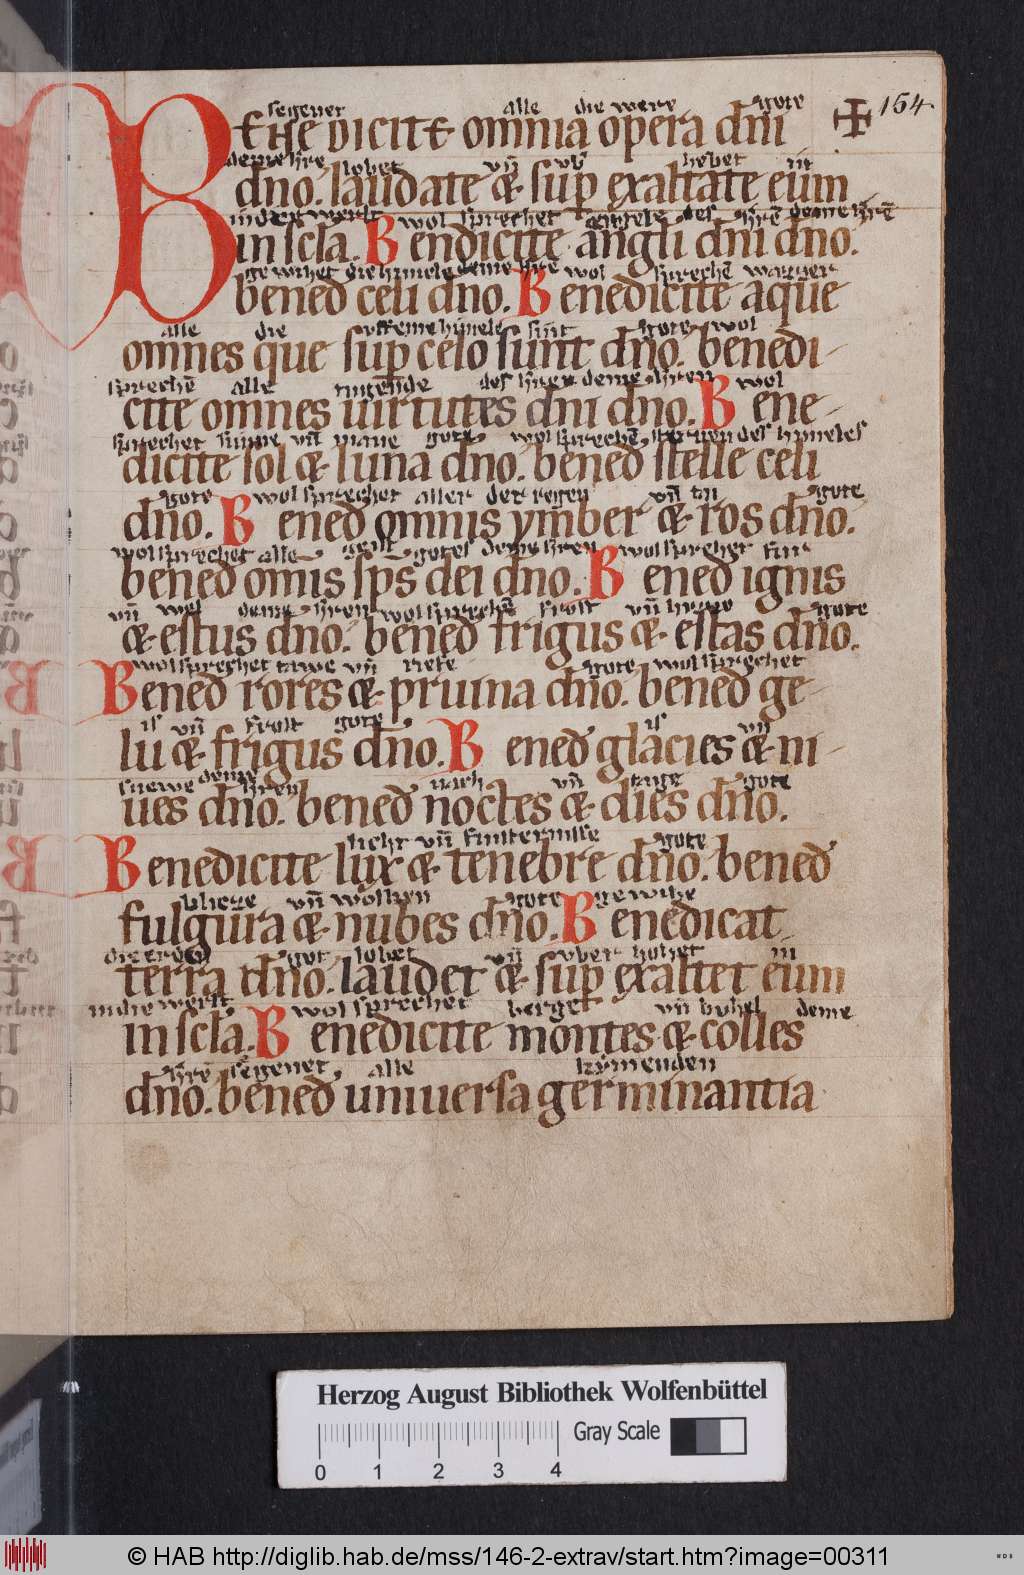 segenet alle die were gote
BENEDICITE omnia opera dn̄i
154
deme h̄re lobet vn̄ vb̓ hebet in
dn̄o. laudate & sup exaltate eum
in der werlt wol sprechet engele des h̄re deme h̄rē
in scl̄a. Bendicite angl̄i dn̄i dn̄o.
ge wihet die himele deme h̄re wol sprechē wazzer
bened̄ celi dn̄o. Benedicite aque
alle die vffeme himele sint gote wol
omnes que sup celo sunt dn̄o. benedi-
sprechē alle tugende des h̄ren deme h̄ren wol
cite omnes uirtutes dn̄i dn̄o. Bene-
sprechet sunne vn̄ mane gote wol sprechē sterren des himeles
dicite sol & luna dn̄o. bened̄ stelle celi
gote wol sprechet aller der regen vn̄ tu gote
dn̄o. Bened̄ omnis ymber & ros dn̄o.
wol sprechet alle geist gotes deme h̄ren wol sprechet fiur
bened̄ omīs sp̄s dei dn̄o. Bened̄ ignis
vn̄ deme h̄ren wol sprechē frost vn̄ gote
& estus dn̄o. bened̄ frigus & estas dn̄o.
wol sprechet tawe vn̄ riefe gote wol sprechet
Bened̄ rores & pruina dn̄o. bened̄ ge-
is vn̄ frost gote is vn̄
lu & frigus dn̄o. Bened̄ glacies & ni-
snewe deme h̄ren nach vn̄ tage gote
ues dn̄o. bened̄ noctes & dies dn̄o.
licht vn̄ finsternisse gote
Benedicite lux & tenebre dn̄o. bened̄
blicze vn̄ wolken gote ge wihe
fulgura & nubes dn̄o. Benedicat
die erden got lobet vn̄ vber hohet in
terra dn̄o. laudet & sup exaltet eum
in die werlt wol sprechet berge vn̄ buhel deme
in scl̄a. Benedicite montes & colles
h̄re segenet alle kymenden
dn̄o. bened̄ uniuersa germinantia
Herzog August Bibliothek Wolfenbüttel
Gray Scale
0 1 2 3 4
© HAB http://diglib.hab.de/mss/146-2-extrav/start.htm?image=00311